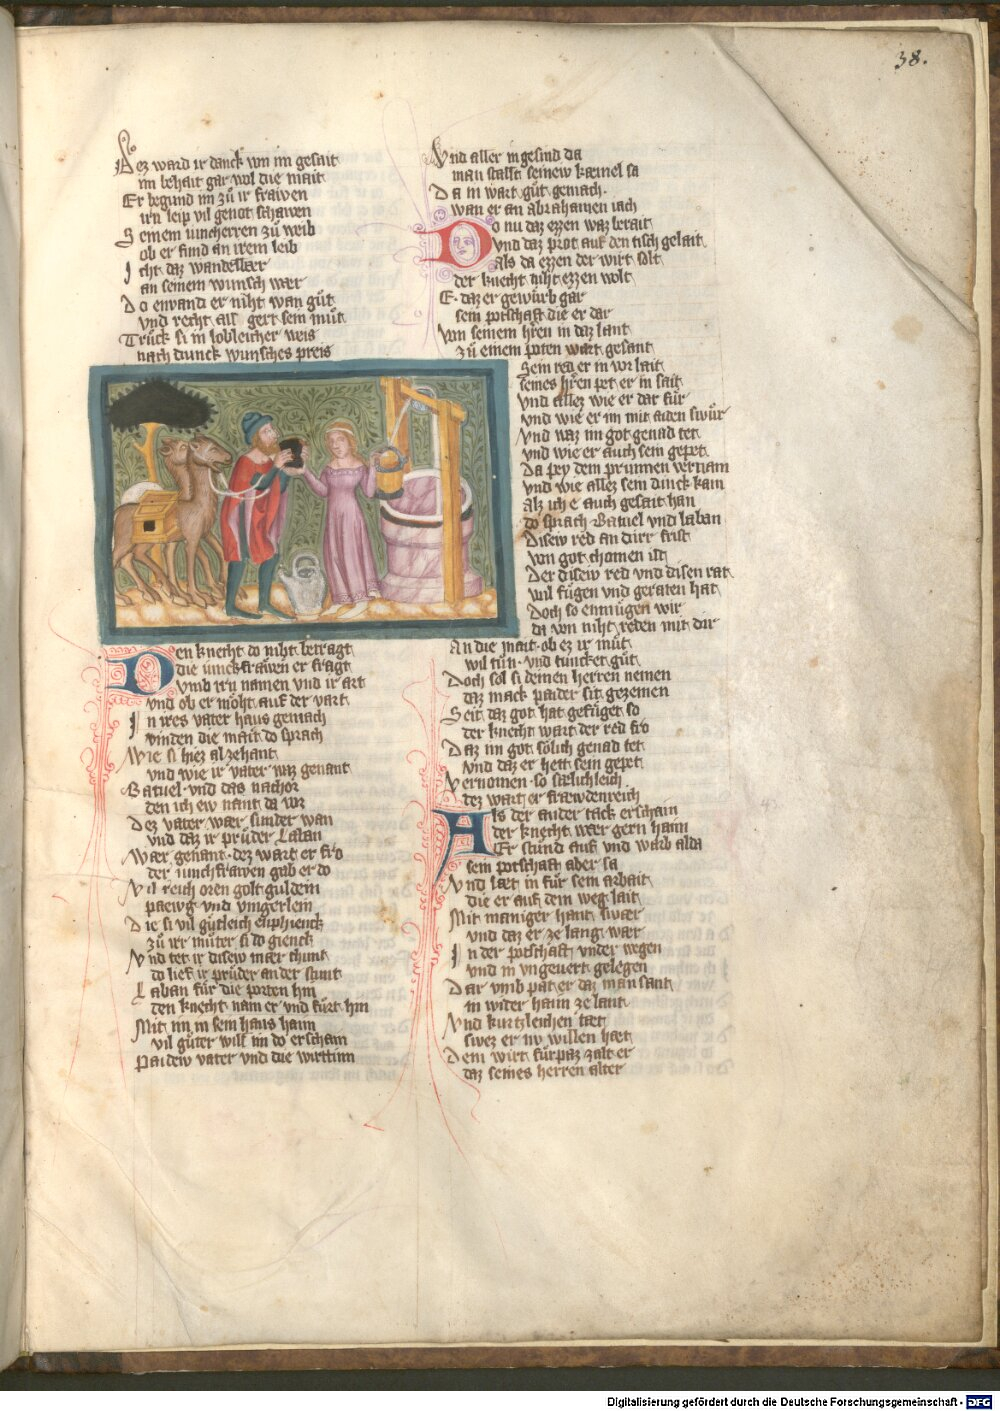 38.
Dez ward ir danck von im gesait
im behait gar wol die mait
Er begund im zů ir frawen
irn leip vil genot schawen
Seinem iuncherren zů weib
ob er fund an irem leib
Icht daz wandelbær
an seinem wunsch wær
Do envand er niht wan gůt
vnd recht als gert sein můt
Trůck si in lobleicher weis
nach dunck wunsches preis
Den knecht do niht betragt
die iunckfrawen er fragt
vmb irn namen vnd ir art
vnd ob er mőht auf der vart
In ires vater haus gemach
vinden die mait do sprach
Wie si hiez alzehant
vnd wie ir vater waz genant
Batuel vnd das nachor
den ich ew nant da vor
Dez vater wær sunder wan
vnd daz ir průder Laban
Wær genant dez wart er fro
der iunchfrawen gab er do
Vil reich oren golt guldein
paewg vnd vingerlein
Die si vil gůtleich enphienck
zů irr můter si do gienck
Vnd tet ir disew mær chunt
do lief ir průder an der stunt
Laban fůr die porten hin
den knecht nam er vnd fůrt hin
Mit im in sein haus haim
vil gůter will im do erscham
Paidew vater vnd die wirttinn
Vnd aller ingesind da
man stalft seinew kæmel sa
Da in wart gůt gemach.
wan er an abrahamen iach
Do nu daz ezzen waz berait
vnd daz prot auf den tisch gelait
als da ezzen der wirt solt
der knecht niht ezzen wolt
E. daz er gewurb gar
sein potschaft die er dar
Von seinem hren in daz lant
zů einem poten wart gesant
Sein red er in vor lait
seines hren pet er in sait
vnd allez wie er dar fůr
vnd wie er im mit aiden swůr
vnd waz im got genad tet
vnd wie er auch sein gepet
Da pey dem prunnen vernam
vnd wie allez sein dinck kam
Alz ich e auch gesait han
do sprach Batuel vnd laban
Disew red an dirr frist
von got chomen ist
Der disew red vnd disen rat
wil fůgen vnd geraten hat
Doch so enmůgen wir
da von niht reden mit dir
An die mait ob ez ir můt
wil tůn vnd tuncket gůt
Doch sol si deinen herren nemen
daz mack paider sit gezemen
Seit daz got hat gefůget so
der knecht wart der red fro
Daz im got sőlich genad tet
vnd daz er hett sein gepet
Vernomen so sælichleich
dez wart er fræwdenreich
Als der ander tack erscham
der knecht wær gern haim
Er stund auf vnd warb alda
sein potschaft aber sa
Vnd læt in für sein arbait
die er auf dem weg lait
Mit maniger hant swær
vnd daz er ze lang wær
In der potschaft vnder wegen
vnd in vngevert gelegen
Dar vmb pat er daz man sant
in wider haim ze lant
Vnd kurtzleichen tæt
swez er nv willen hæt
Dem wirt fůrpaz zalt er
daz seines herren alter
Digitalisierung gefördert durch die Deutsche Forschungsgemeinschaft - DFG